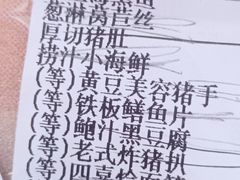 葱淋莴苣丝
厚切猪肚
捞汁小海鲜
(等)黄豆芙容猪手
(等)铁板鳝鱼片
(等)鲍汁黑豆腐
(等)老式炸猪扒
(等)四喜